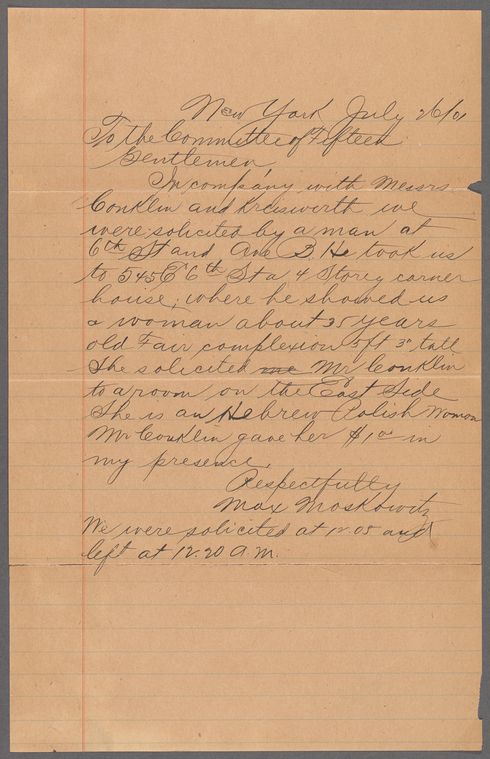 New York July 26/01
To the Committee of Fifteen
Gentlemen
In company with Messrs
Conklin and Kreisworth we
were solicited by a man at
6th St and Ave B. He took us
to 545 E 6th St a 4 Storey corner
house, where he showed us
a woman about 35 years
old Fair complexion 5 ft 3" tall
She solicited me Mr Conklin
to a room on the East Side
She is an Hebrew Polish Woman
Mr Conklin gave her $1.00 in
my presence.
Respectfully
Max Moskowitz
We were solicited at 12.05 and
left at 12.20 A.M.